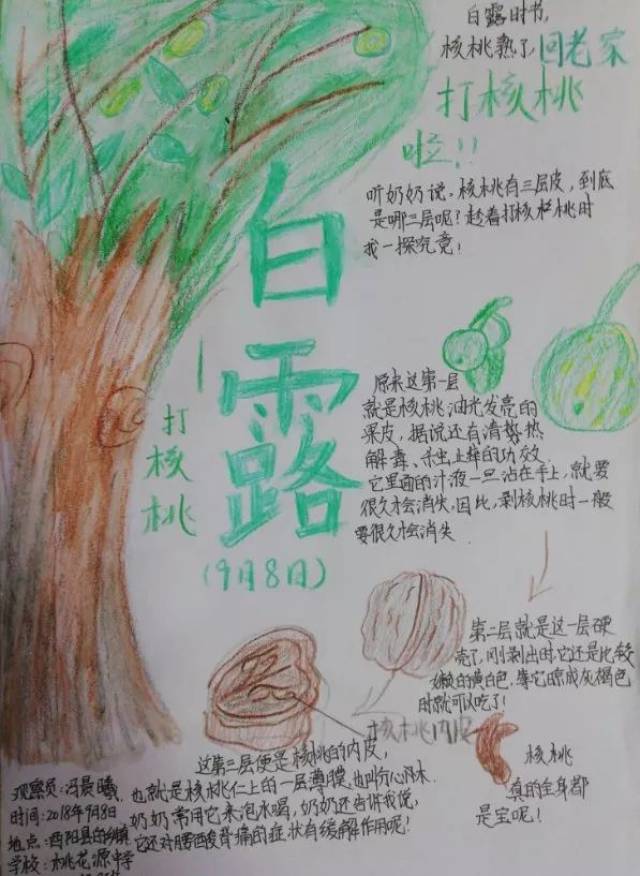 白露时节,
核桃熟了,回老家
打核桃
啦!!
听奶奶说,核桃有三层皮,到底
是哪三层呢?趁着打核桃时
我一探究竟!
白露
(9月8日)
打核桃
原来这第一层
就是核桃油光发亮的
果皮,据说还有清热
解毒、杀虫止痒的功效.
它里面的汁液一旦沾在手上,就要
很久才会消失,因此,剥核桃时一般
要很久才会消失
第二层就是这一层硬
壳了,刚剥出时,它还是比较
嫩的黄白色,等它晾成灰褐色
时就可以吃了!
核桃内皮
这第三层便是核桃的内皮,
也就是核桃仁上的一层薄膜,也叫分心木.
奶奶常用它来泡水喝,奶奶还告诉我说,
它还对腰酸背痛的症状有缓解作用呢!
核桃
真的全身都
是宝呢!
观察员:冯晨曦
时间:2018年9月8日
地点:酉阳县
学校:桃花源中学